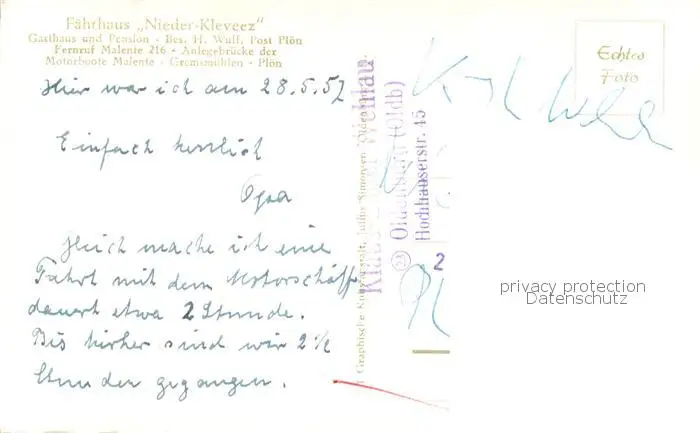 Fährhaus „Nieder-Kleveez"
Gasthaus und Pension · Bes. H. Wulf, Post Plön
Fernruf Malente 216 · Anlegebrücke der
Motorboote Malente · Gremsmühlen · Plön
Hier war ich am 28.5.57
Einfach herrlich
Opa
Gleich mache ich eine
Fahrt mit dem Motorschiff
dauert etwa 2 Stunde.
Bis hierher sind wir 2½
Stunden gegangen.
Graphische Kunstanstalt, Julius Simonsen
(23) Oldenburg (Oldb)
Hochhauserstr. 45
2
Echtes
Foto
privacy protection
Datenschutz